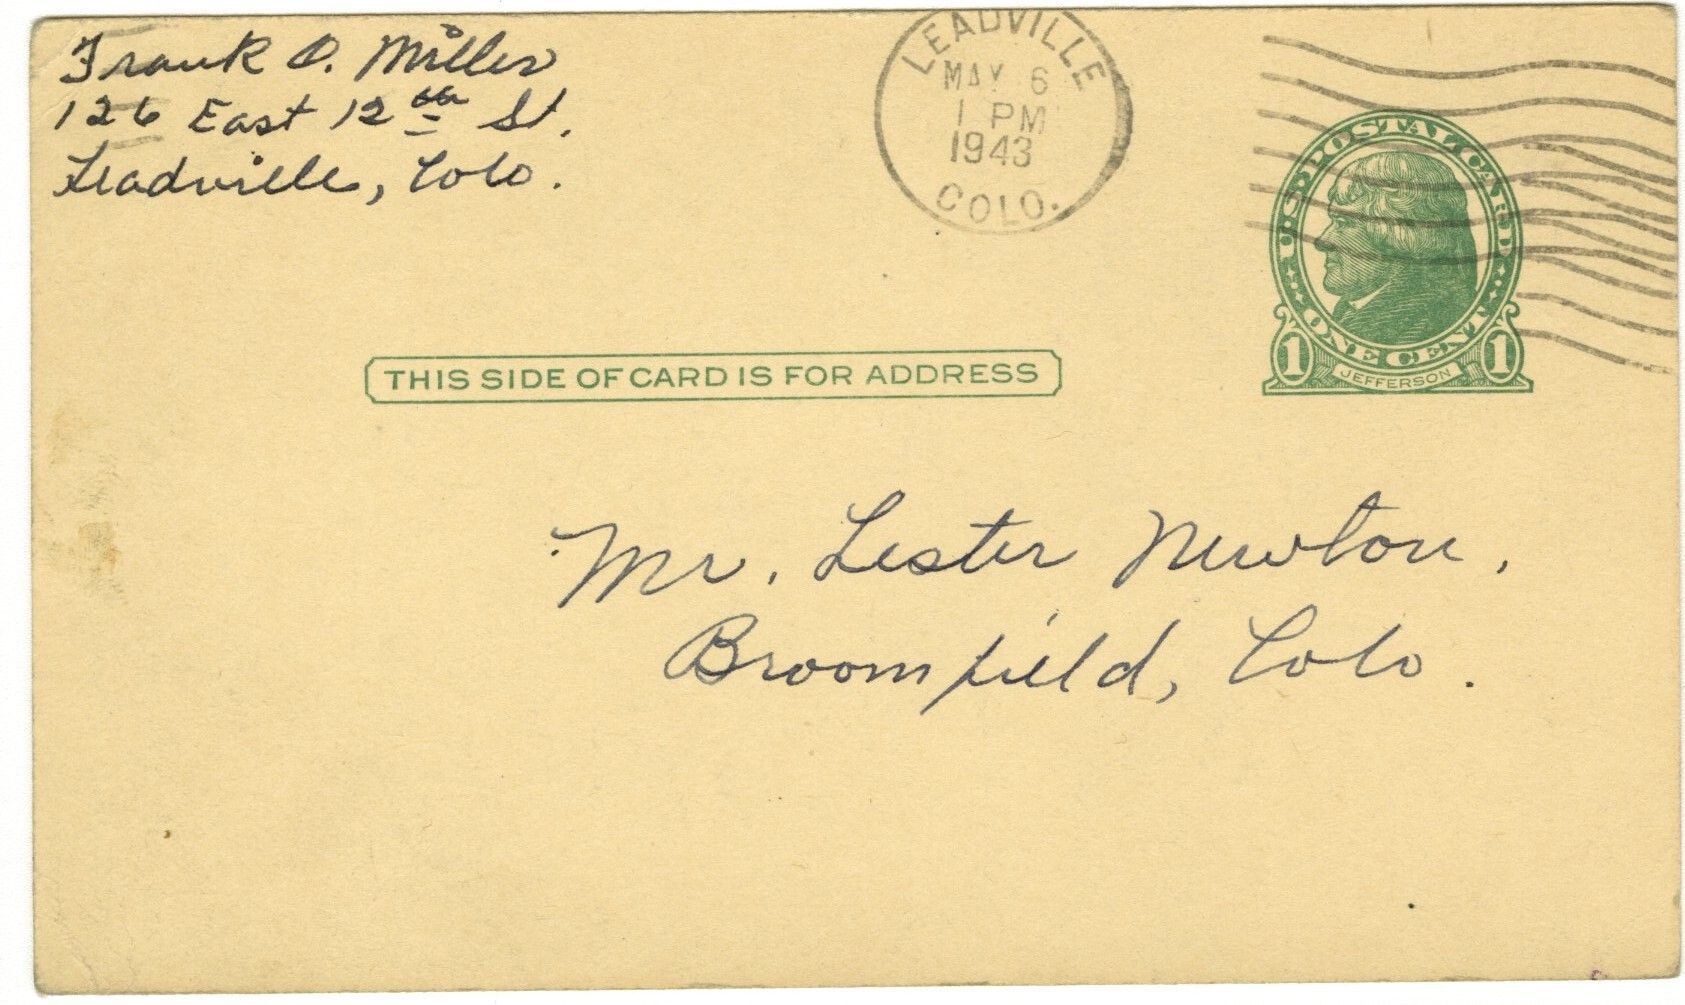 Frank O. Miller
126 East 12th St.
Leadville, Colo.
LEADVILLE
MAY 6
1 PM
1943
COLO.
U.S. POSTAL CARD
ONE CENT
1 JEFFERSON 1
THIS SIDE OF CARD IS FOR ADDRESS
Mr. Lester Newton,
Broomfield, Colo.